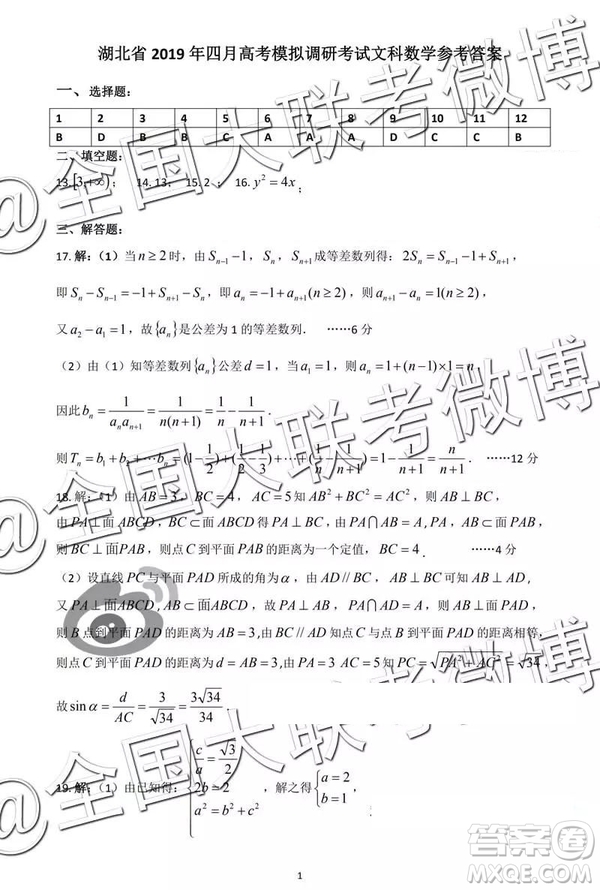 湖北省 2019 年四月高考模拟调研考试文科数学参考答案
一、 选择题：
1 2 3 4 5 6 7 8 9 10 11 12
B D B B C A A A D C C B
二、填空题：
13.[3,+∞)； 14. 13； 15. 2 ； 16. y²=4x；
三、解答题：
17.解：（1）当 n≥2 时，由 Sₙ₋₁−1，Sₙ，Sₙ₊₁ 成等差数列得：2Sₙ=Sₙ₋₁−1+Sₙ₊₁，
即 Sₙ−Sₙ₋₁=−1+Sₙ₊₁−Sₙ，即 aₙ=−1+aₙ₊₁(n≥2)，则 aₙ₊₁−aₙ=1(n≥2)，
又 a₂−a₁=1，故{aₙ}是公差为 1 的等差数列． ……6 分
（2）由（1）知等差数列{aₙ}公差 d=1，当 a₁=1，则 aₙ=1+(n−1)×1=n，
因此 bₙ=1/(aₙaₙ₊₁)=1/(n(n+1))=1/n−1/(n+1)．
则 Tₙ=b₁+b₂+⋯bₙ=(1−1/2)+(1/2−1/3)+⋯(1/n−1/(n+1))=1−1/(n+1)=n/(n+1)． ……12 分
18.解：（1）由 AB=3，BC=4，AC=5 知 AB²+BC²=AC²，则 AB⊥BC，
由 PA⊥面 ABCD，BC⊂面 ABCD 得 PA⊥BC，由 PA∩AB=A，PA，AB⊂面 PAB，
则 BC⊥面PAB，则点 C 到平面 PAB 的距离为一个定值，BC=4． ……4 分
（2）设直线 PC 与平面 PAD 所成的角为 α，由 AD//BC，AB⊥BC 知 AB⊥AD，
又 PA⊥面 ABCD，AB⊂面 ABCD，则 PA⊥AB，PA∩AD=A，则 AB⊥面 PAD，
则 B 点到平面 PAD 的距离为 AB=3，由 AD//BC 知点 B 与点 C 到平面 PAD 的距离相等，
则点 C 到平面 PAD 的距离为 d=AB=3，由 PA=3，AC=5 知 PC=√(PA²+AC²)=√34，
故 sin α=d/AC=3/√34=3√34/34．
19.解：（1）由已知得：{c/a=√3/2 2b=2 a²=b²+c²，解之得{a=2 b=1，
1
@全国大联考微博
@全国大联考微博
@全国大联考微博
答案圈
MXQE.COM